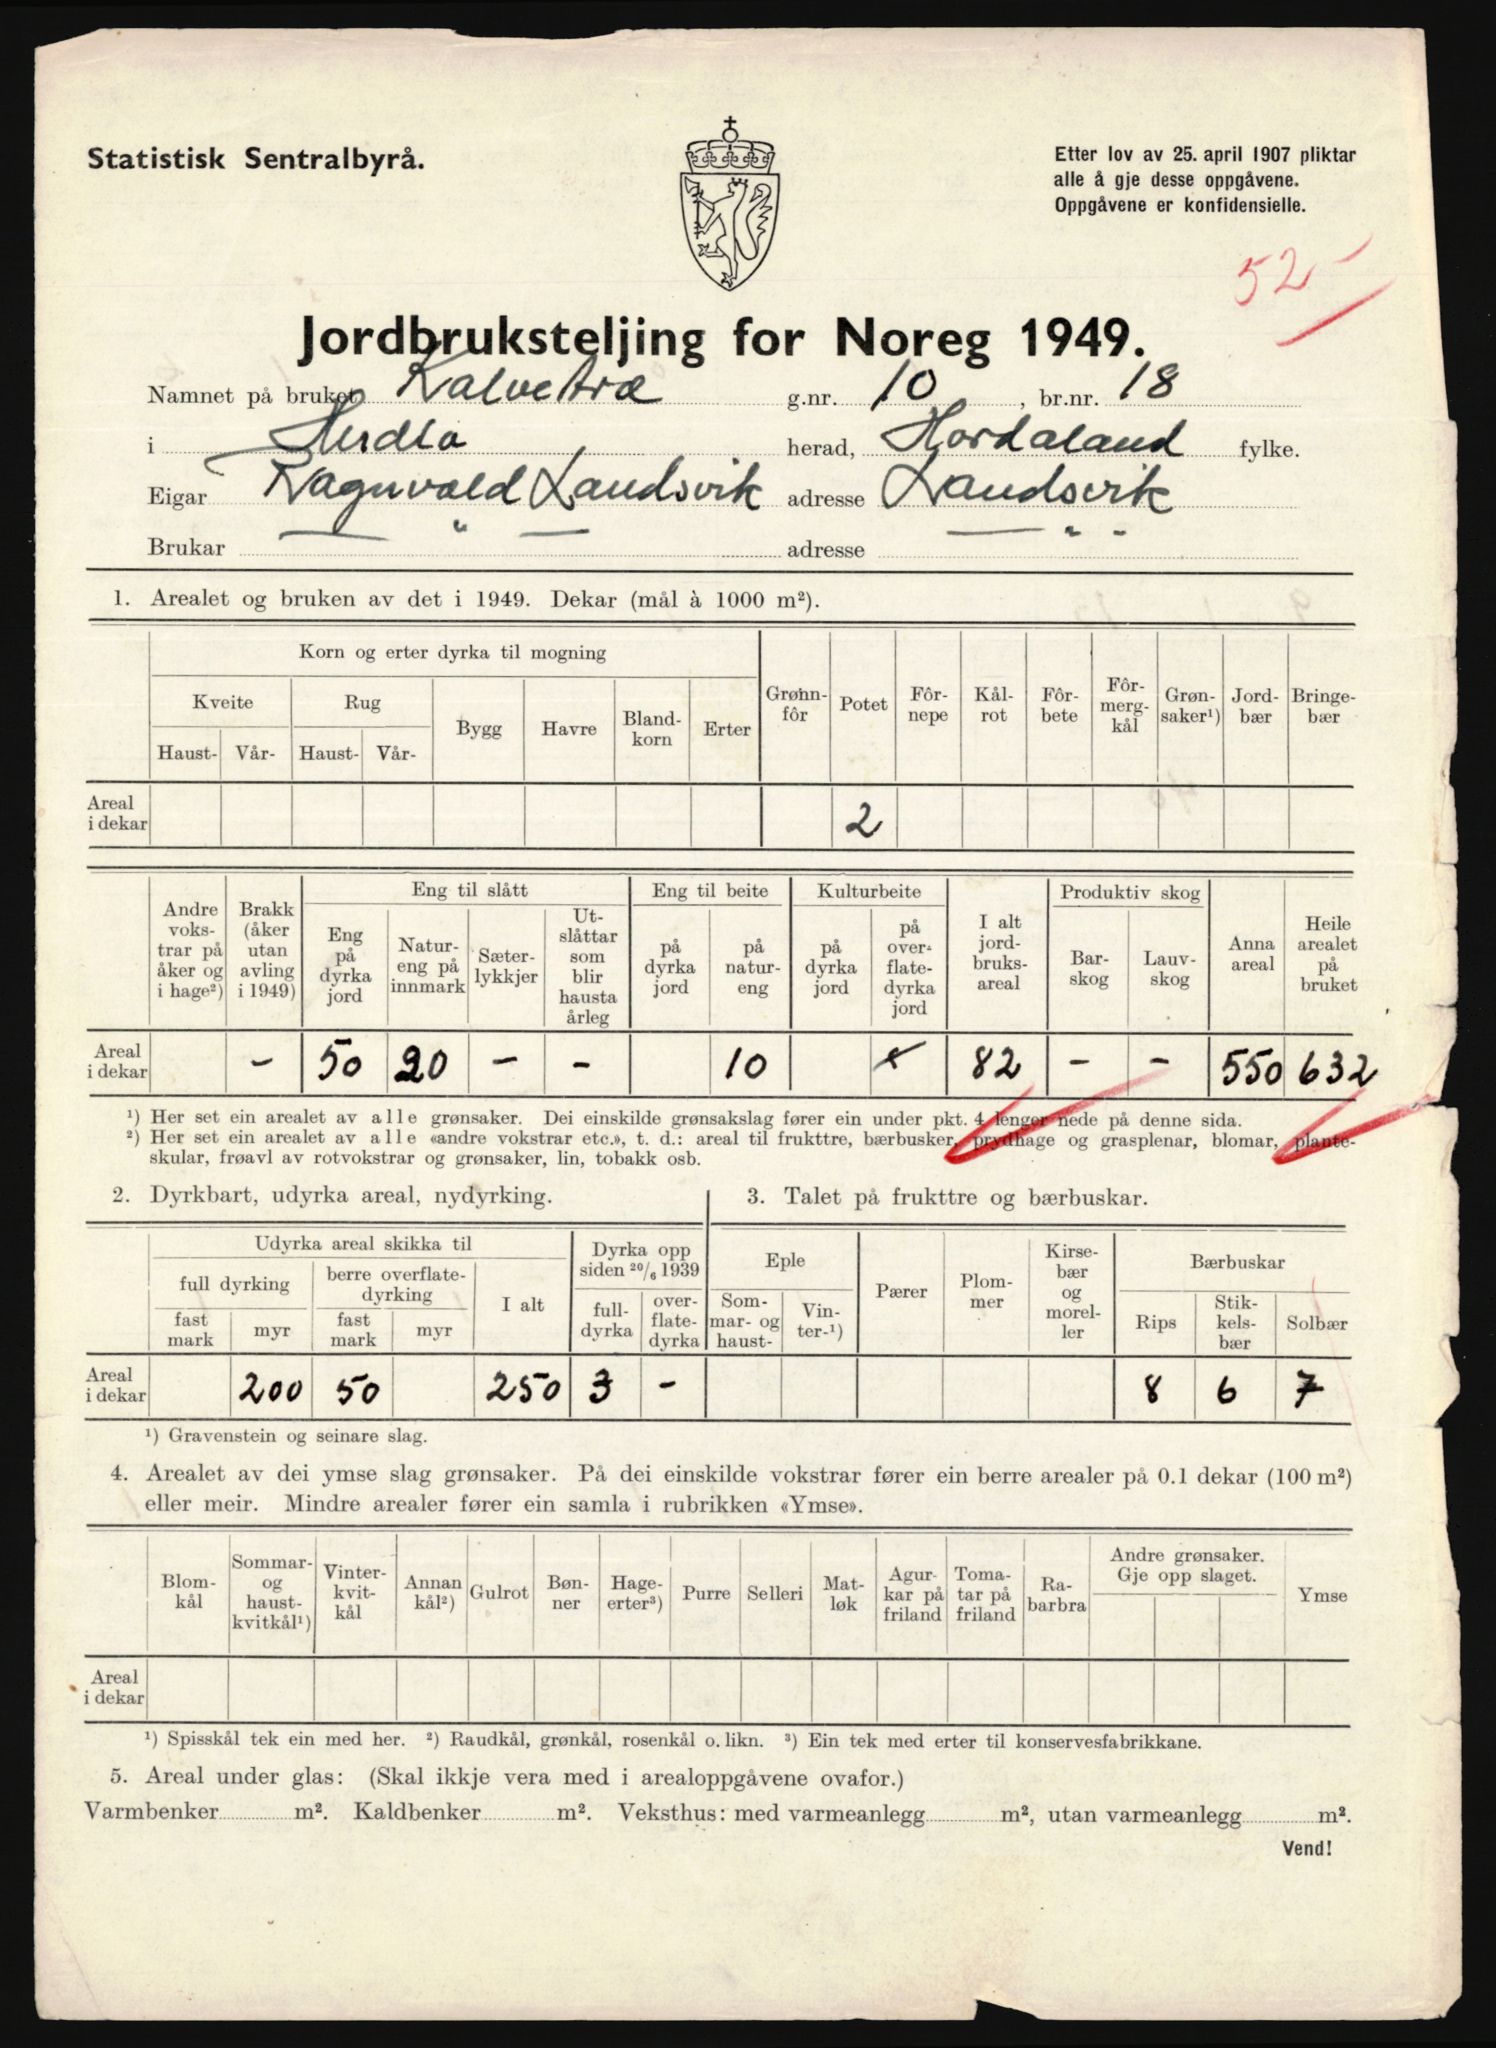 Statistisk Sentralbyrå.
Etter lov av 25. april 1907 pliktar
alle å gje desse oppgåvene.
Oppgåvene er konfidensielle.
52 -
Jordbruksteljing for Noreg 1949.
Namnet på bruket Kalvetræ g.nr. 10, br.nr. 18
i Herdla herad, Hordaland fylke.
Eigar Ragnvald Landsvik adresse Landsvik
Brukar — " — adresse — " -
1. Arealet og bruken av det i 1949. Dekar (mål à 1000 m²).
Korn og erter dyrka til mogning
Kveite Rug
Haust- Vår- Haust- Vår- Bygg Havre Bland-korn Erter Grøhn-fôr Potet Fôr-nepe Kål-rot Fôr-bete Fôr-merg-kål Grøn-saker¹) Jord-bær Bringe-bær
Areal i dekar 2
Eng til slått Eng til beite Kulturbeite Produktiv skog
Andre voks-trar på åker og i hage²) Brakk (åker utan avling i 1949) Eng på dyrka jord Natur-eng på innmark Sæter-lykkjer Ut-slåttar som blir hausta årleg på dyrka jord på natur-eng på dyrka jord på over-flate-dyrka jord I alt jord-bruks-areal Bar-skog Lauv-skog Anna areal Heile arealet på bruket
Areal i dekar - 50 20 - - 10 x 82 - - 550 632
¹) Her set ein arealet av alle grønsaker. Dei einskilde grønsakslag fører ein under pkt. 4 lenger nede på denne sida.
²) Her set ein arealet av alle «andre vokstrar etc.», t. d.: areal til frukttre, bærbusker, prydhage og grasplenar, blomar, plante-
skular, frøavl av rotvokstrar og grønsaker, lin, tobakk osb.
2. Dyrkbart, udyrka areal, nydyrking.
3. Talet på frukttre og bærbuskar.
Udyrka areal skikka til Dyrka opp siden 20/6 1939 Eple Bærbuskar
full dyrking berre overflate-dyrking
fast mark myr fast mark myr I alt full-dyrka over-flate-dyrka Som-mar- og haust- Vin-ter-¹) Pærer Plom-mer Kirse-bær og morel-ler Rips Stik-kels-bær Solbær
Areal i dekar 200 50 250 3 - 8 6 7
¹) Gravenstein og seinare slag.
4. Arealet av dei ymse slag grønsaker. På dei einskilde vokstrar fører ein berre arealer på 0.1 dekar (100 m²)
eller meir. Mindre arealer fører ein samla i rubrikken «Ymse».
Blom-kål Sommar- og haust-kvitkål¹) Vinter-kvit-kål Annan kål²) Gulrot Bøn-ner Hage-erter³) Purre Selleri Mat-løk Agur-kar på friland Toma-tar på friland Ra-barbra Andre grønsaker. Gje opp slaget. Ymse
Areal i dekar
¹) Spisskål tek ein med her. ²) Raudkål, grønkål, rosenkål o. likn. ³) Ein tek med erter til konservesfabrikkane.
5. Areal under glas: (Skal ikkje vera med i arealoppgåvene ovafor.)
Varmbenker m². Kaldbenker m². Veksthus: med varmeanlegg m², utan varmeanlegg m².
Vend!